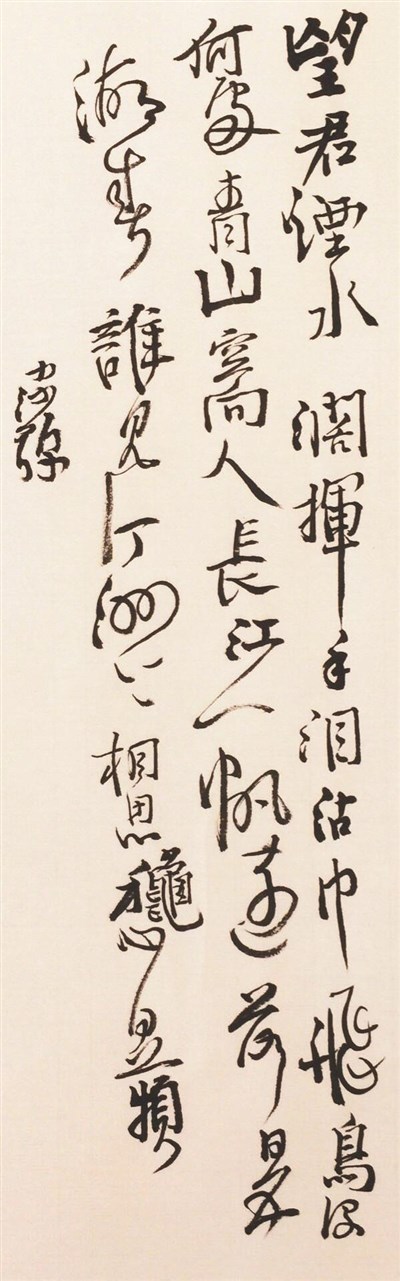 望君煙水濶揮手泪沾巾飛鳥没
何處青山空向人長江一帆遠落日五
湖春誰見汀洲上相思愁白蘋